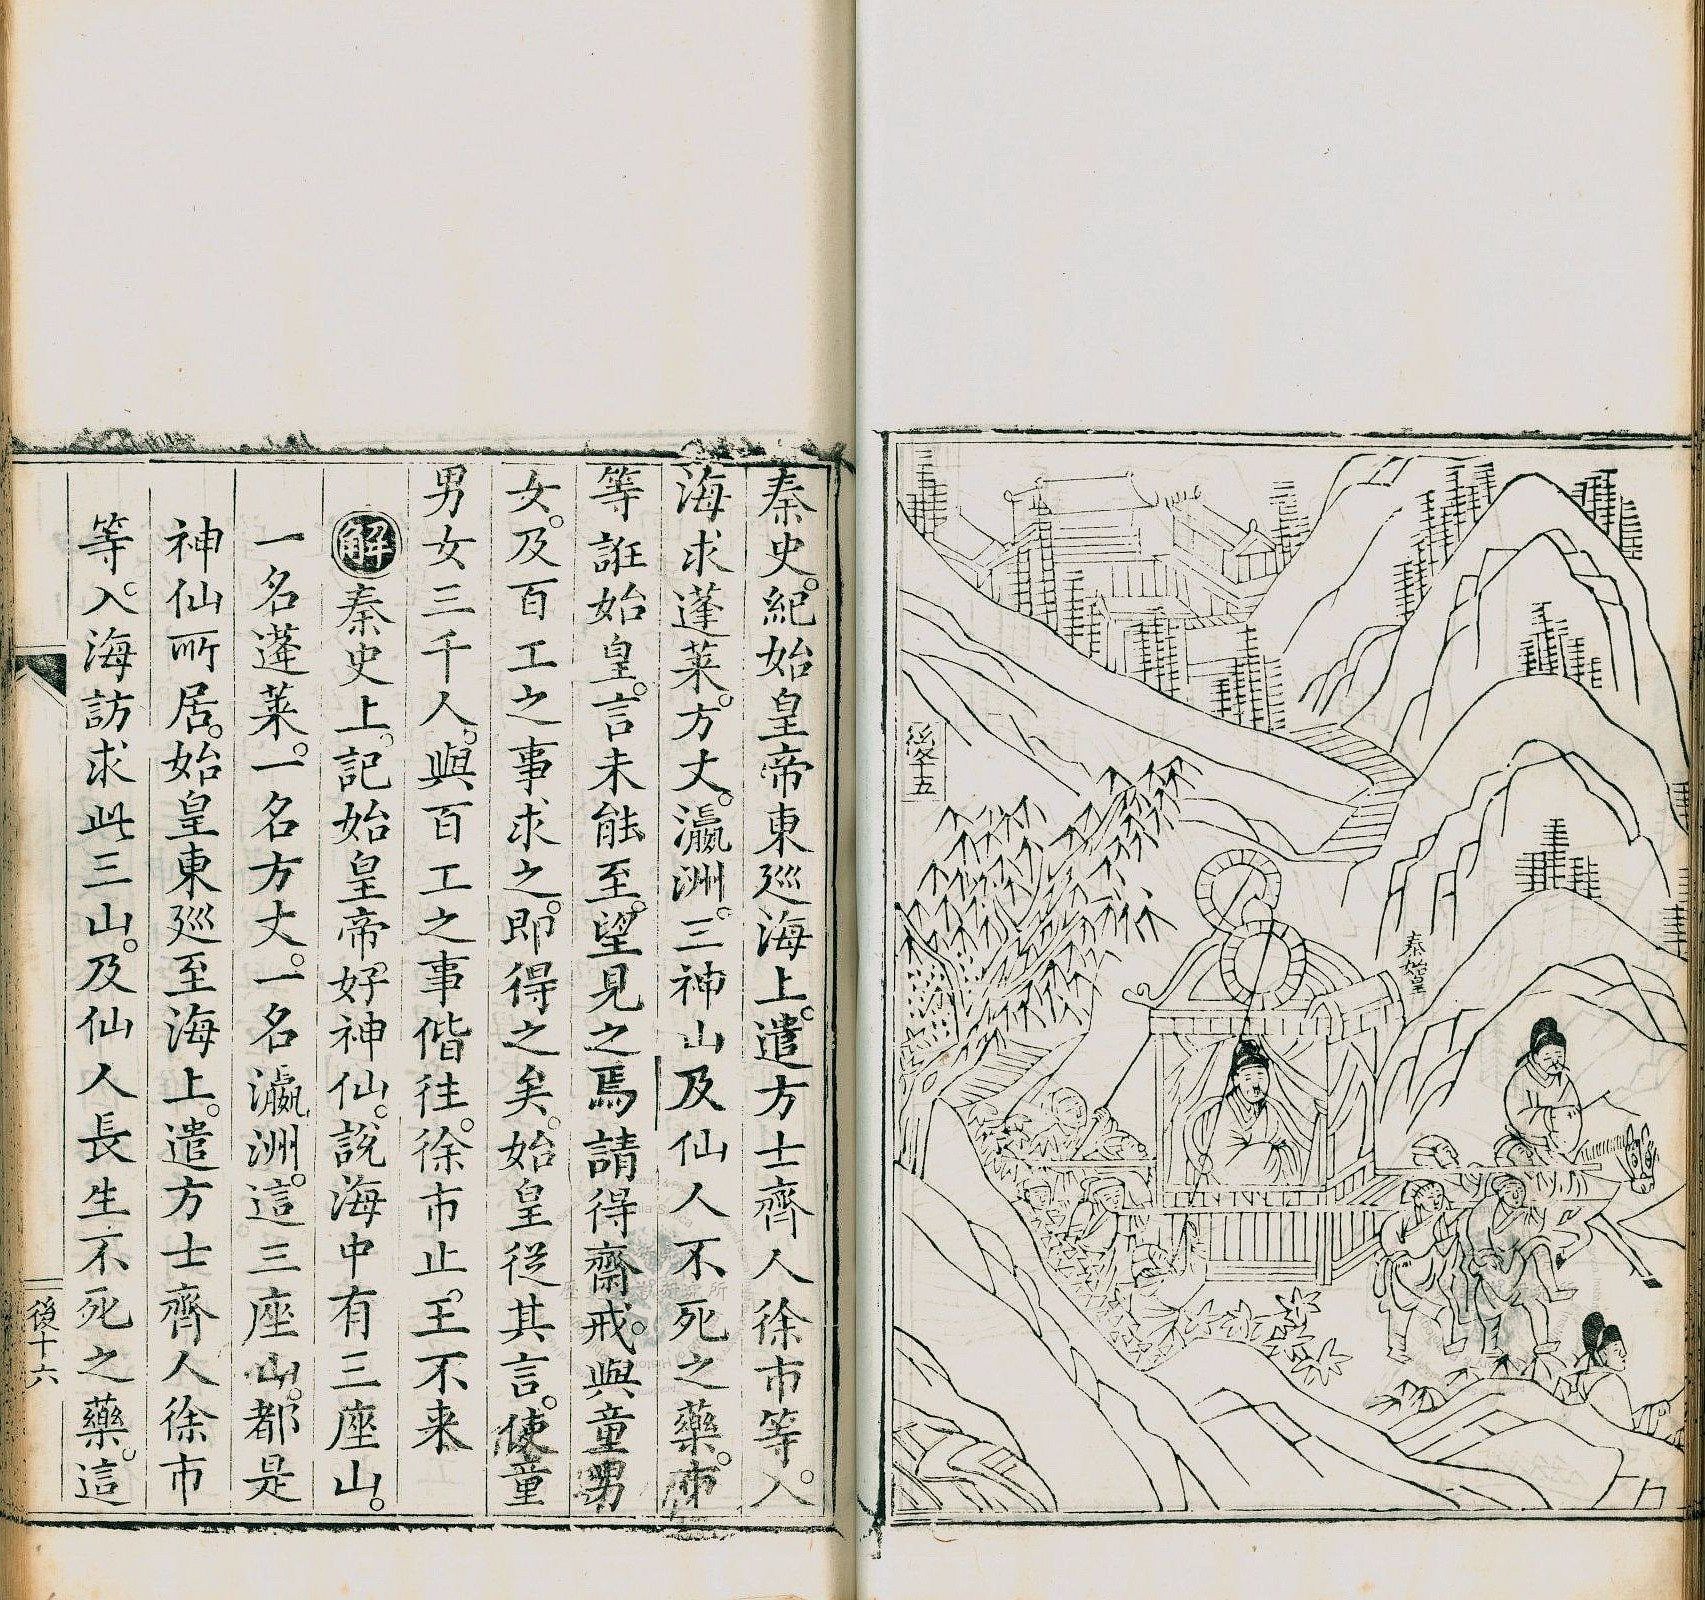 後十五
秦始皇
秦史。紀始皇帝東巡海上。遣方士齊人徐市等。入
海求蓬萊。方丈。瀛洲。三神山及仙人不死之藥。市
等誑始皇。言未能至。望見之焉請得齋戒。與童男
女。及百工之事求之。即得之矣。始皇從其言。使童
男女三千人。與百工之事偕往。徐市止。王不來
解秦史上。記始皇帝。好神仙。說海中有三座山。
一名蓬萊。一名方丈。一名瀛洲。這三座山。都是
神仙所居。始皇東巡至海上。遣方士齊人徐市
等。入海訪求此三山。及仙人長生不死之藥。這
後十六